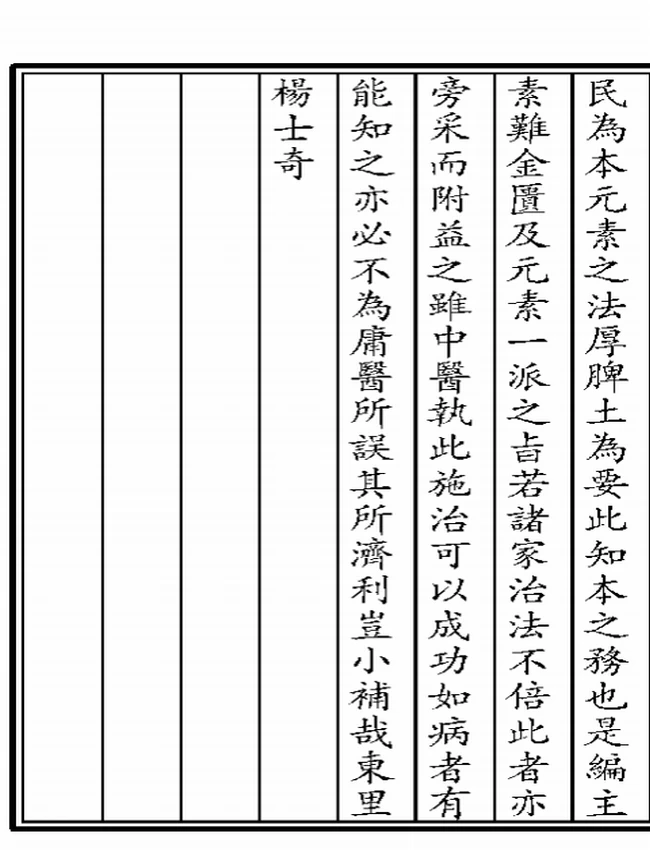 民為本元素之法厚脾土為要此知本之務也是編主
素難金匱及元素一派之㫖若諸家治法不倍此者亦
旁采而附益之雖中醫執此施治可以成功如病者有
能知之亦必不為庸醫所誤其所濟利豈小補哉東里
楊士奇